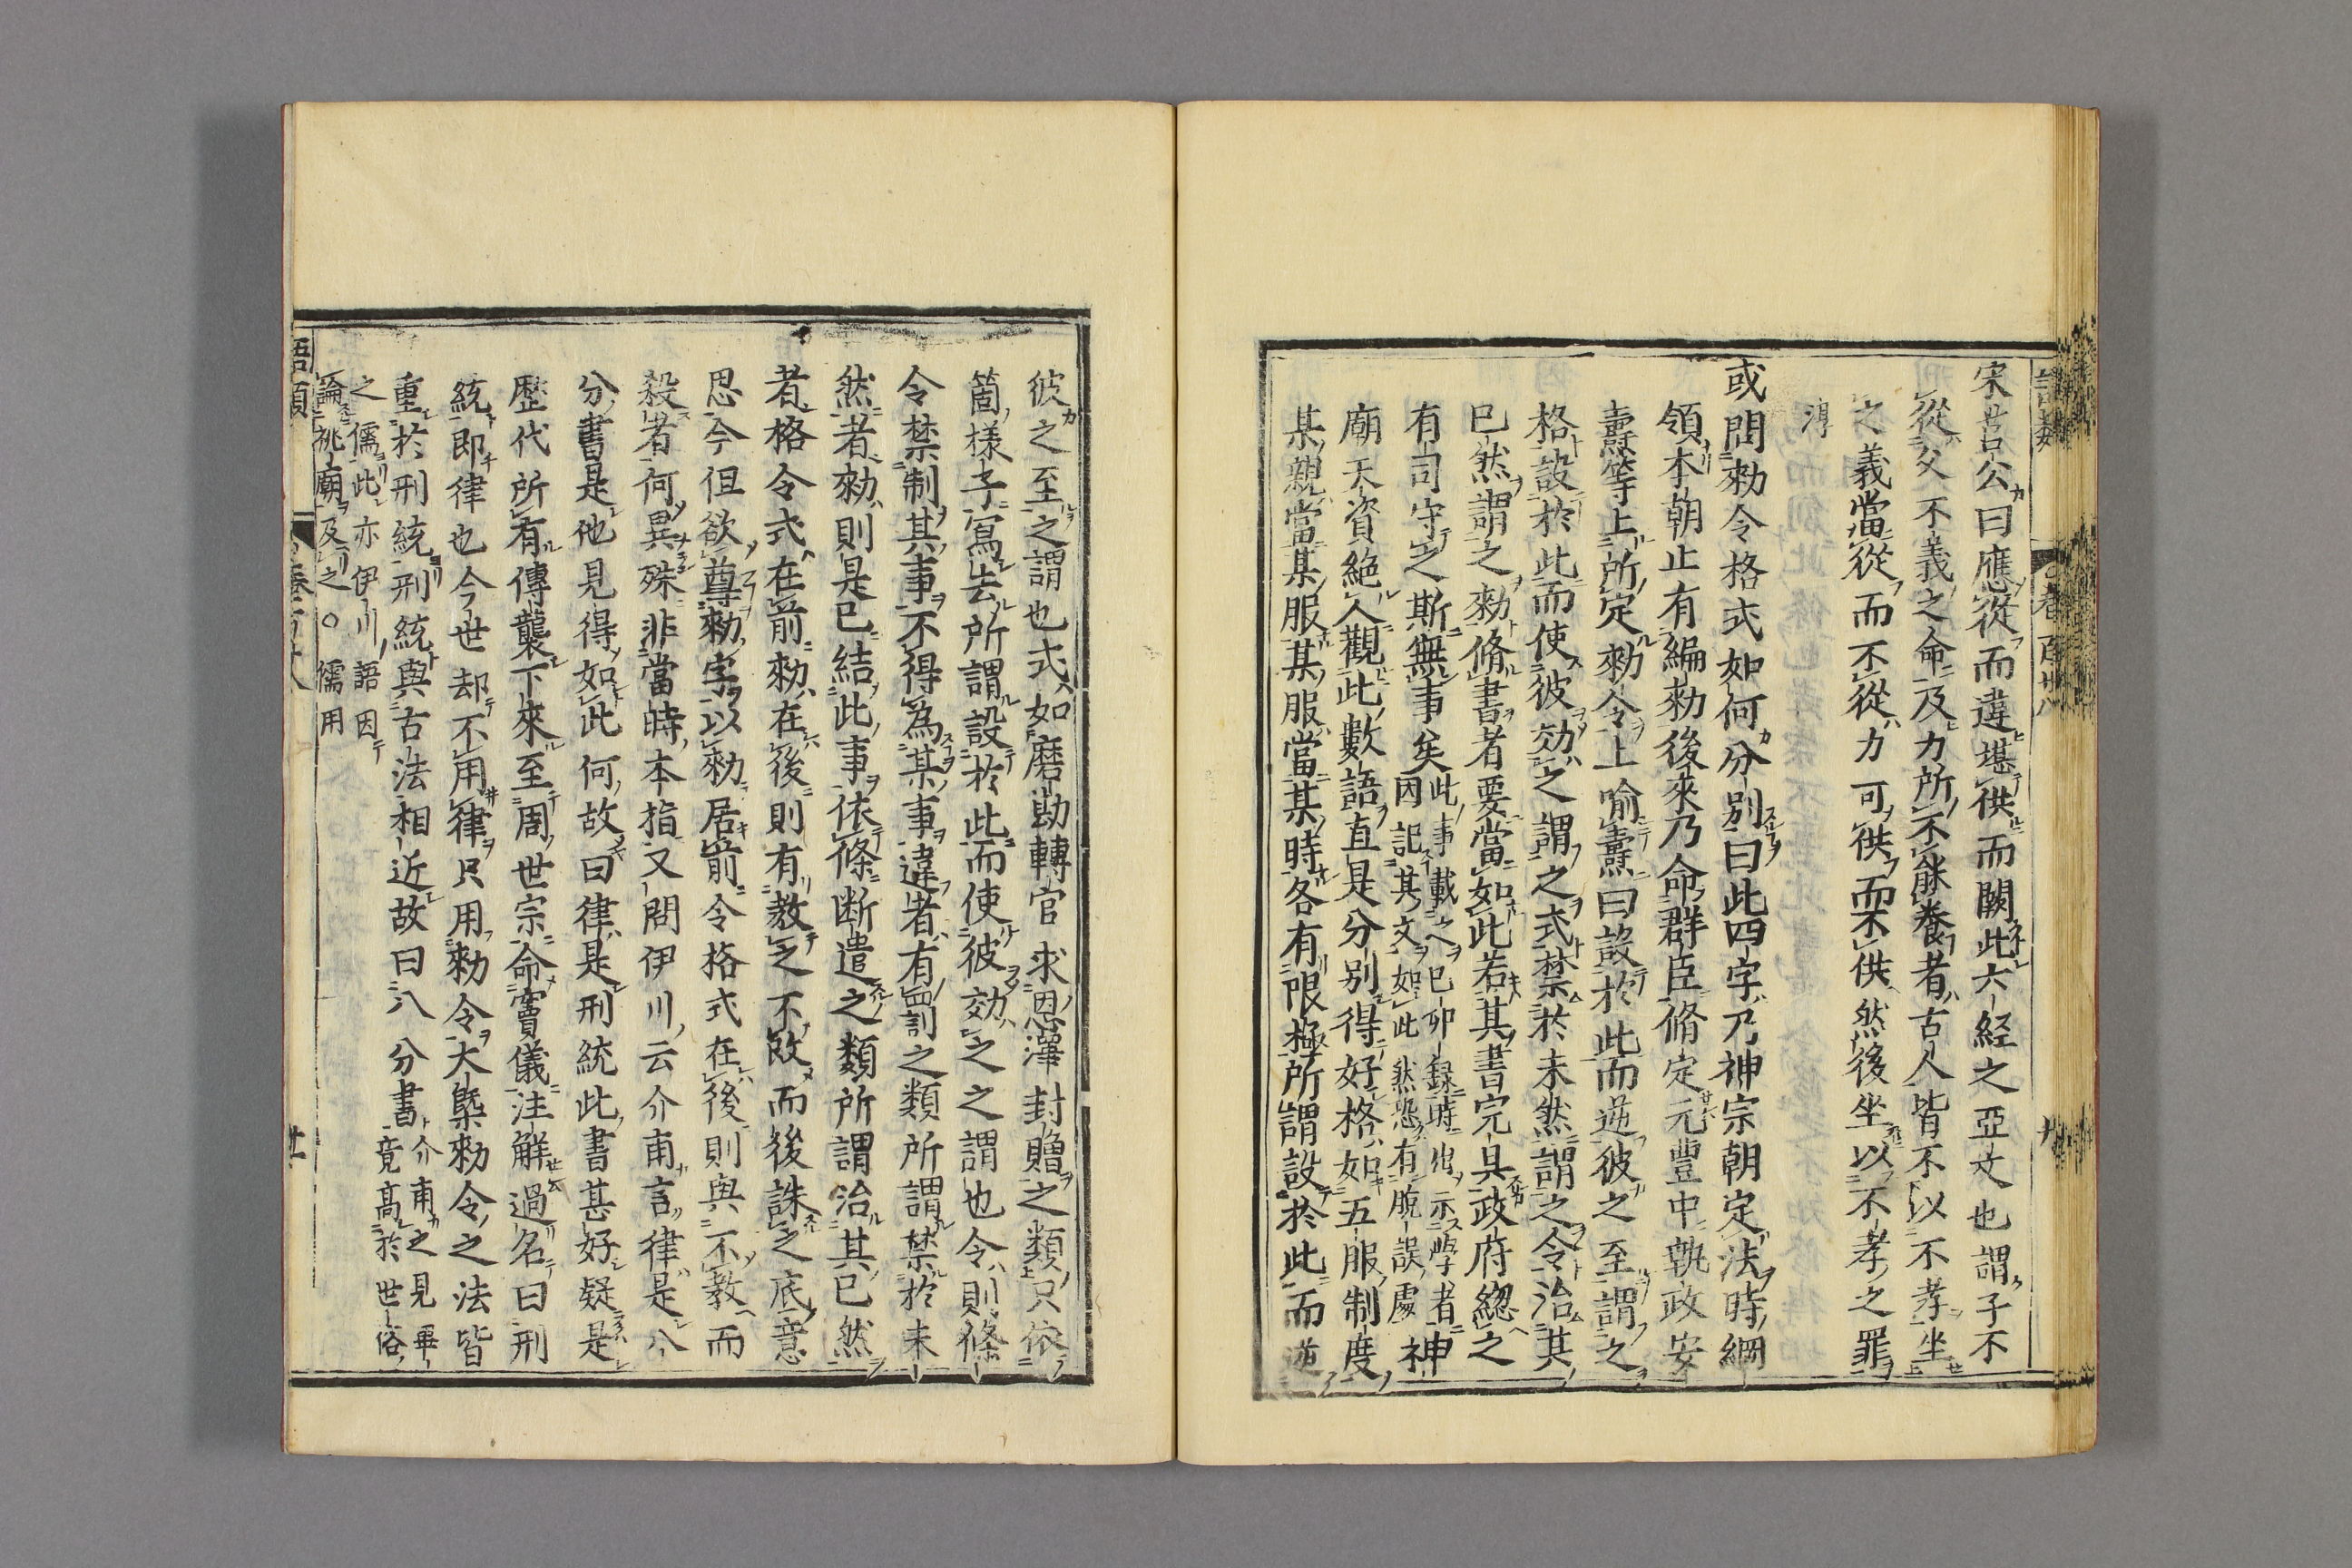 宋莒公曰應從而違堪供而闕此六經之亞文也謂子不
從父不義之命及力所不能養者古人皆不以不孝坐
之義當從而不從力可供而不供然後坐以不孝之罪
淳
或問勑令格式如何分别曰此四字乃神宗朝定法時綱
領本朝止有編勑後來乃命群臣脩定元豐中執政安
燾等上所定勑令上喻燾曰設於此而逆彼之至謂之
格設於此而使彼効之謂之式禁於未然謂之令治其
已然謂之勑脩書者要當如此若其書完具政府緫之
有司守之斯無事矣
此事載之已卯録時出示學者
因記其文如此然恐有脫誤處
神
廟天資絶人觀此數語直是分别得好格如五服制度
某親當某服某服當某時各有限極所謂設於此而逆
彼之至之謂也式如磨勘轉官求恩澤封贈之類只依
箇樣子寫去所謂設於此而使彼効之之謂也令則條
令禁制其事不得為某事違者有罰之類所謂禁於未
然者勑則是已結此事依條断遣之類所謂治其已然
者格令式在前勑在後則有教之不改而後誅之底意
思今但欲尊勑字以勑居前令格式在後則與不教而
殺者何異殊非當時本指又問伊川云介甫言律是八
分書是他見得如此何故曰律是刑統此書甚好疑是
歷代所有傳襲下來至周世宗命竇儀注解過名曰刑
統即律也今世却不用律只用勑令大槩勑令之法皆
重於刑統刑統與古法相近故曰八分書
介甫之見畢
竟高於世俗
之儒此亦伊川語因
論祧廟及之○儒用
語類
卷百廿八